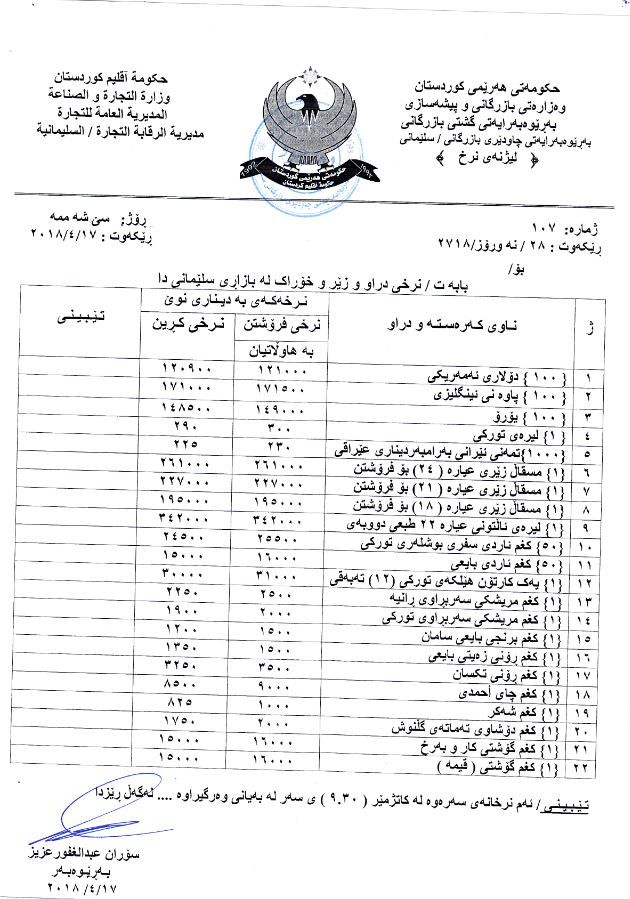 حكومة أقليم كوردستان
وزارة التجارة و الصناعة
المديرية العامة للتجارة
مديرية الرقابة التجارة / السليمانية
حكومەتی هەرێمی كوردستان
وەزارەتی بازرگانی و پیشەسازی
بەڕێوەبەرایەتی گشتی بازرگانی
بەڕێوەبەرایەتی چاودێری بازرگانی / سلێمانی
﴿ لیژنەی نرخ ﴾
حكومەتی هەرێمی كوردستان
حكومة اقليم كردستان
1992
ڕۆژ: سێ شە ممە
ڕێكەوت : ٢٠١٨/٤/١٧
ژمارە: ١٠٧
ڕێكەوت : ٢٨ / نە ورۆز/ ٢٧١٨
بۆ/
بابە ت / نرخی دراو و زێڕ و خۆراك لە بازاڕی سلێمانی دا
ژ ناوی كەرەستە و دراو نرخەكەی بە دیناری نوێ تێبینی
نرخی فرۆشتن بە هاوڵاتیان نرخی كڕین
١ { ١٠٠ } دۆلاری ئەمەریكی ١٢١٠٠٠ ١٢٠٩٠٠
٢ { ١٠٠ } پاوە نی ئینگلیزی ١٧١٥٠٠ ١٧١٠٠٠
٣ { ١٠٠ } یۆرۆ ١٤٩٠٠٠ ١٤٨٥٠٠
٤ { ١ } لیرەی توركی ٣٠٠ ٢٩٠
٥ {١٠٠٠}تمەنی ئێرانی بەرامبەردیناری عێراقی ٢٣٠ ٢٢٥
٦ {١} مسقاڵ زێڕی عیارە ( ٢٤ ) بۆ فرۆشتن ٢٦١٠٠٠ ٢٦١٠٠٠
٧ {١} مسقاڵ زێڕی عیارە ( ٢١ ) بۆ فرۆشتن ٢٢٧٠٠٠ ٢٢٧٠٠٠
٨ {١} مسقاڵ زێڕی عیارە ( ١٨ ) بۆ فرۆشتن ١٩٥٠٠٠ ١٩٥٠٠٠
٩ {١} لیرەی ئاڵتونی عیارە ٢٢ طبعي دووبەی ٣٤٢٠٠٠ ٣٤٢٠٠٠
١٠ {٥٠} كغم ئاردی سفری بوشلەری توركی ٢٥٥٠٠ ٢٤٥٠٠
١١ {٥٠} كغم ئاردی بایعی ١٦٠٠٠ ١٥٠٠٠
١٢ {١} یەك كارتۆن هێلكەی توركی (١٢) تەبەقی ٣١٠٠٠ ٣٠٠٠٠
١٣ {١} كغم مریشكی سەربراوی ڕانیە ٢٥٠٠ ٢٢٥٠
١٤ {١} كغم مریشكی سەربراوی توركی ٢٠٠٠ ١٩٠٠
١٥ {١} كغم برنجی بایعی سامان ١٥٠٠ ١٢٠٠
١٦ {١} كغم ڕۆنی زەیتی بایعی ١٥٠٠ ١٣٥٠
١٧ {١} كغم ڕۆنی تكسان ٣٥٠٠ ٣٢٥٠
١٨ {١} كغم چای أحمدی ٩٠٠٠ ٨٥٠٠
١٩ {١} كغم شەكر ١٠٠٠ ٨٢٥
٢٠ {١} كغم دۆشاوی تەماتەی گڵنوش ٢٠٠٠ ١٧٥٠
٢١ {١} كغم گۆشتی كار و بەرخ ١٦٠٠٠ ١٥٠٠٠
٢٢ {١} كغم گۆشتی ( قیمە ) ١٦٠٠٠ ١٥٠٠٠
تێبینی/ ئەم نرخانەی سەرەوە لە كاتژمێر ( ٩.٣٠ ) ی سەر لە بەیانی وەرگیراوە .... لەگەڵ ڕێزدا
سۆران عبدالغفورعزیز
بەڕێوەبەر
٢٠١٨/٤/١٧